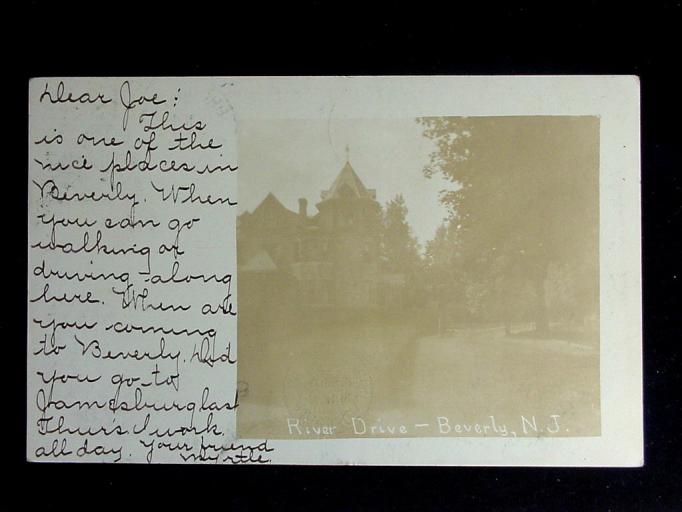 Dear Joe:
This
is one of the
nice places in
Beverly. When
you can go
walking or
driving along
here. When are
you coming
to Beverly. Did
you go to
Jamesburg last
Thurs. I work
all day. Your friend
Myrtle.
River Drive – Beverly, N.J.